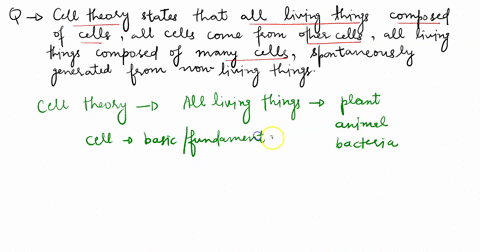 Q → Cell theory states that all living things composed
of cells, all cells come from other cells, all living
things composed of many cells, spontaneously
generated from non-living things.
Cell theory → All living things → plant
animel
cell → basic/fundament bacteria